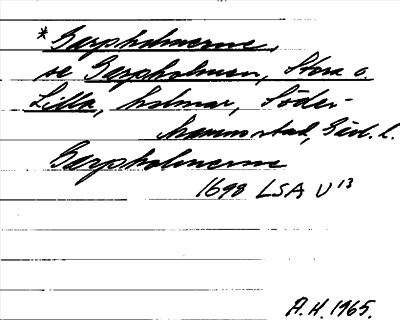 *Garpholmarne,
se Garpholmen, Stora o.
Lilla, holmar, Söder-
hamns stad, Gävl. l.
Garpholmarne
1698 LSA U 13
A.H. 1965.